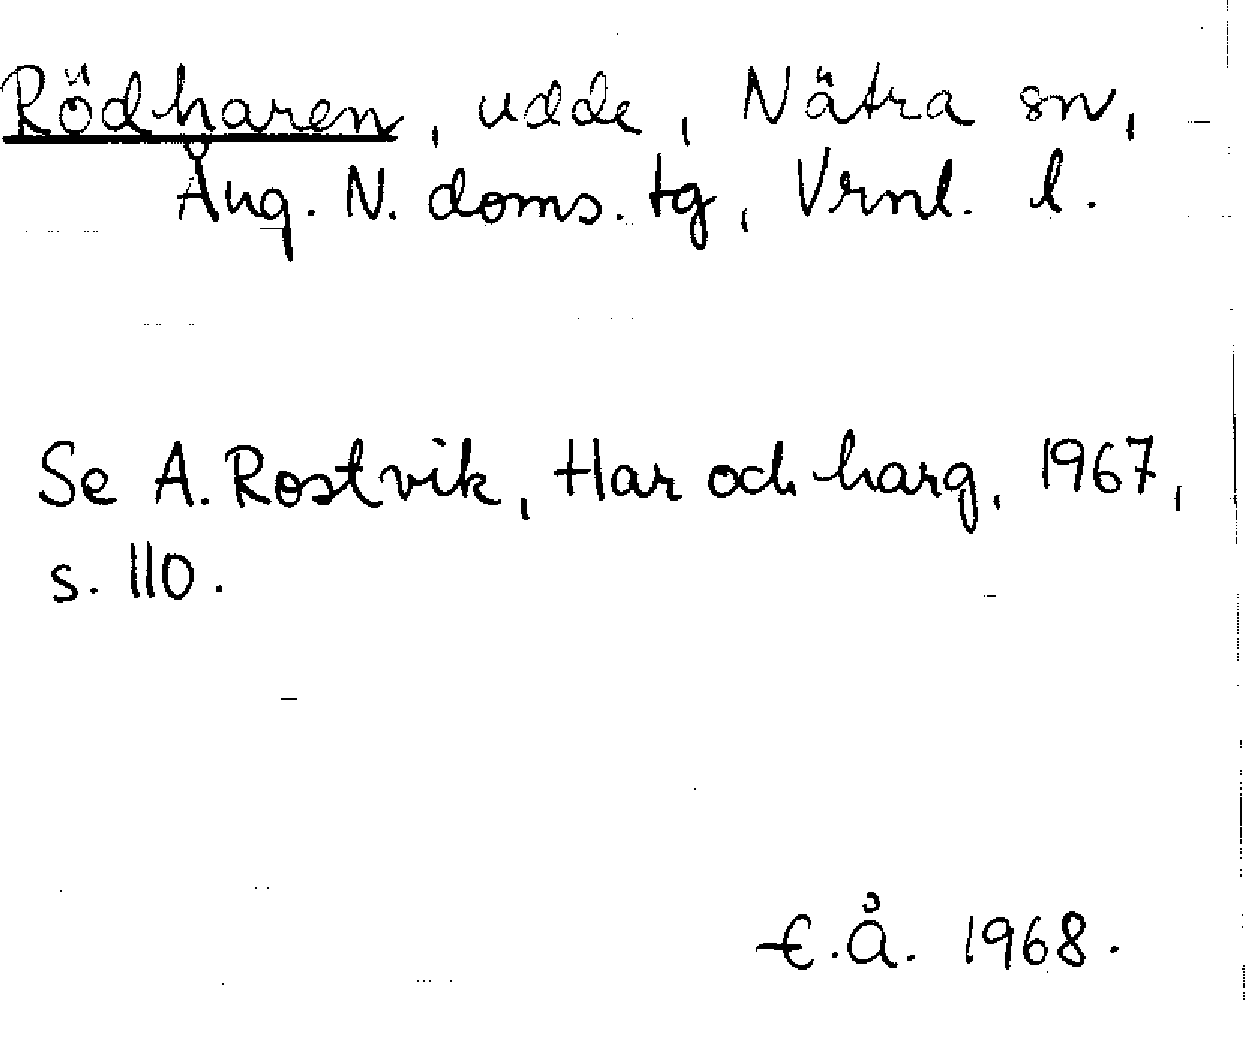 Rödharen, udde, Nätra sn,
Ång. N. doms. tg, Vrnl. l.
Se A. Rostvik, Har och harg, 1967,
s. 110.
E.Å. 1968.